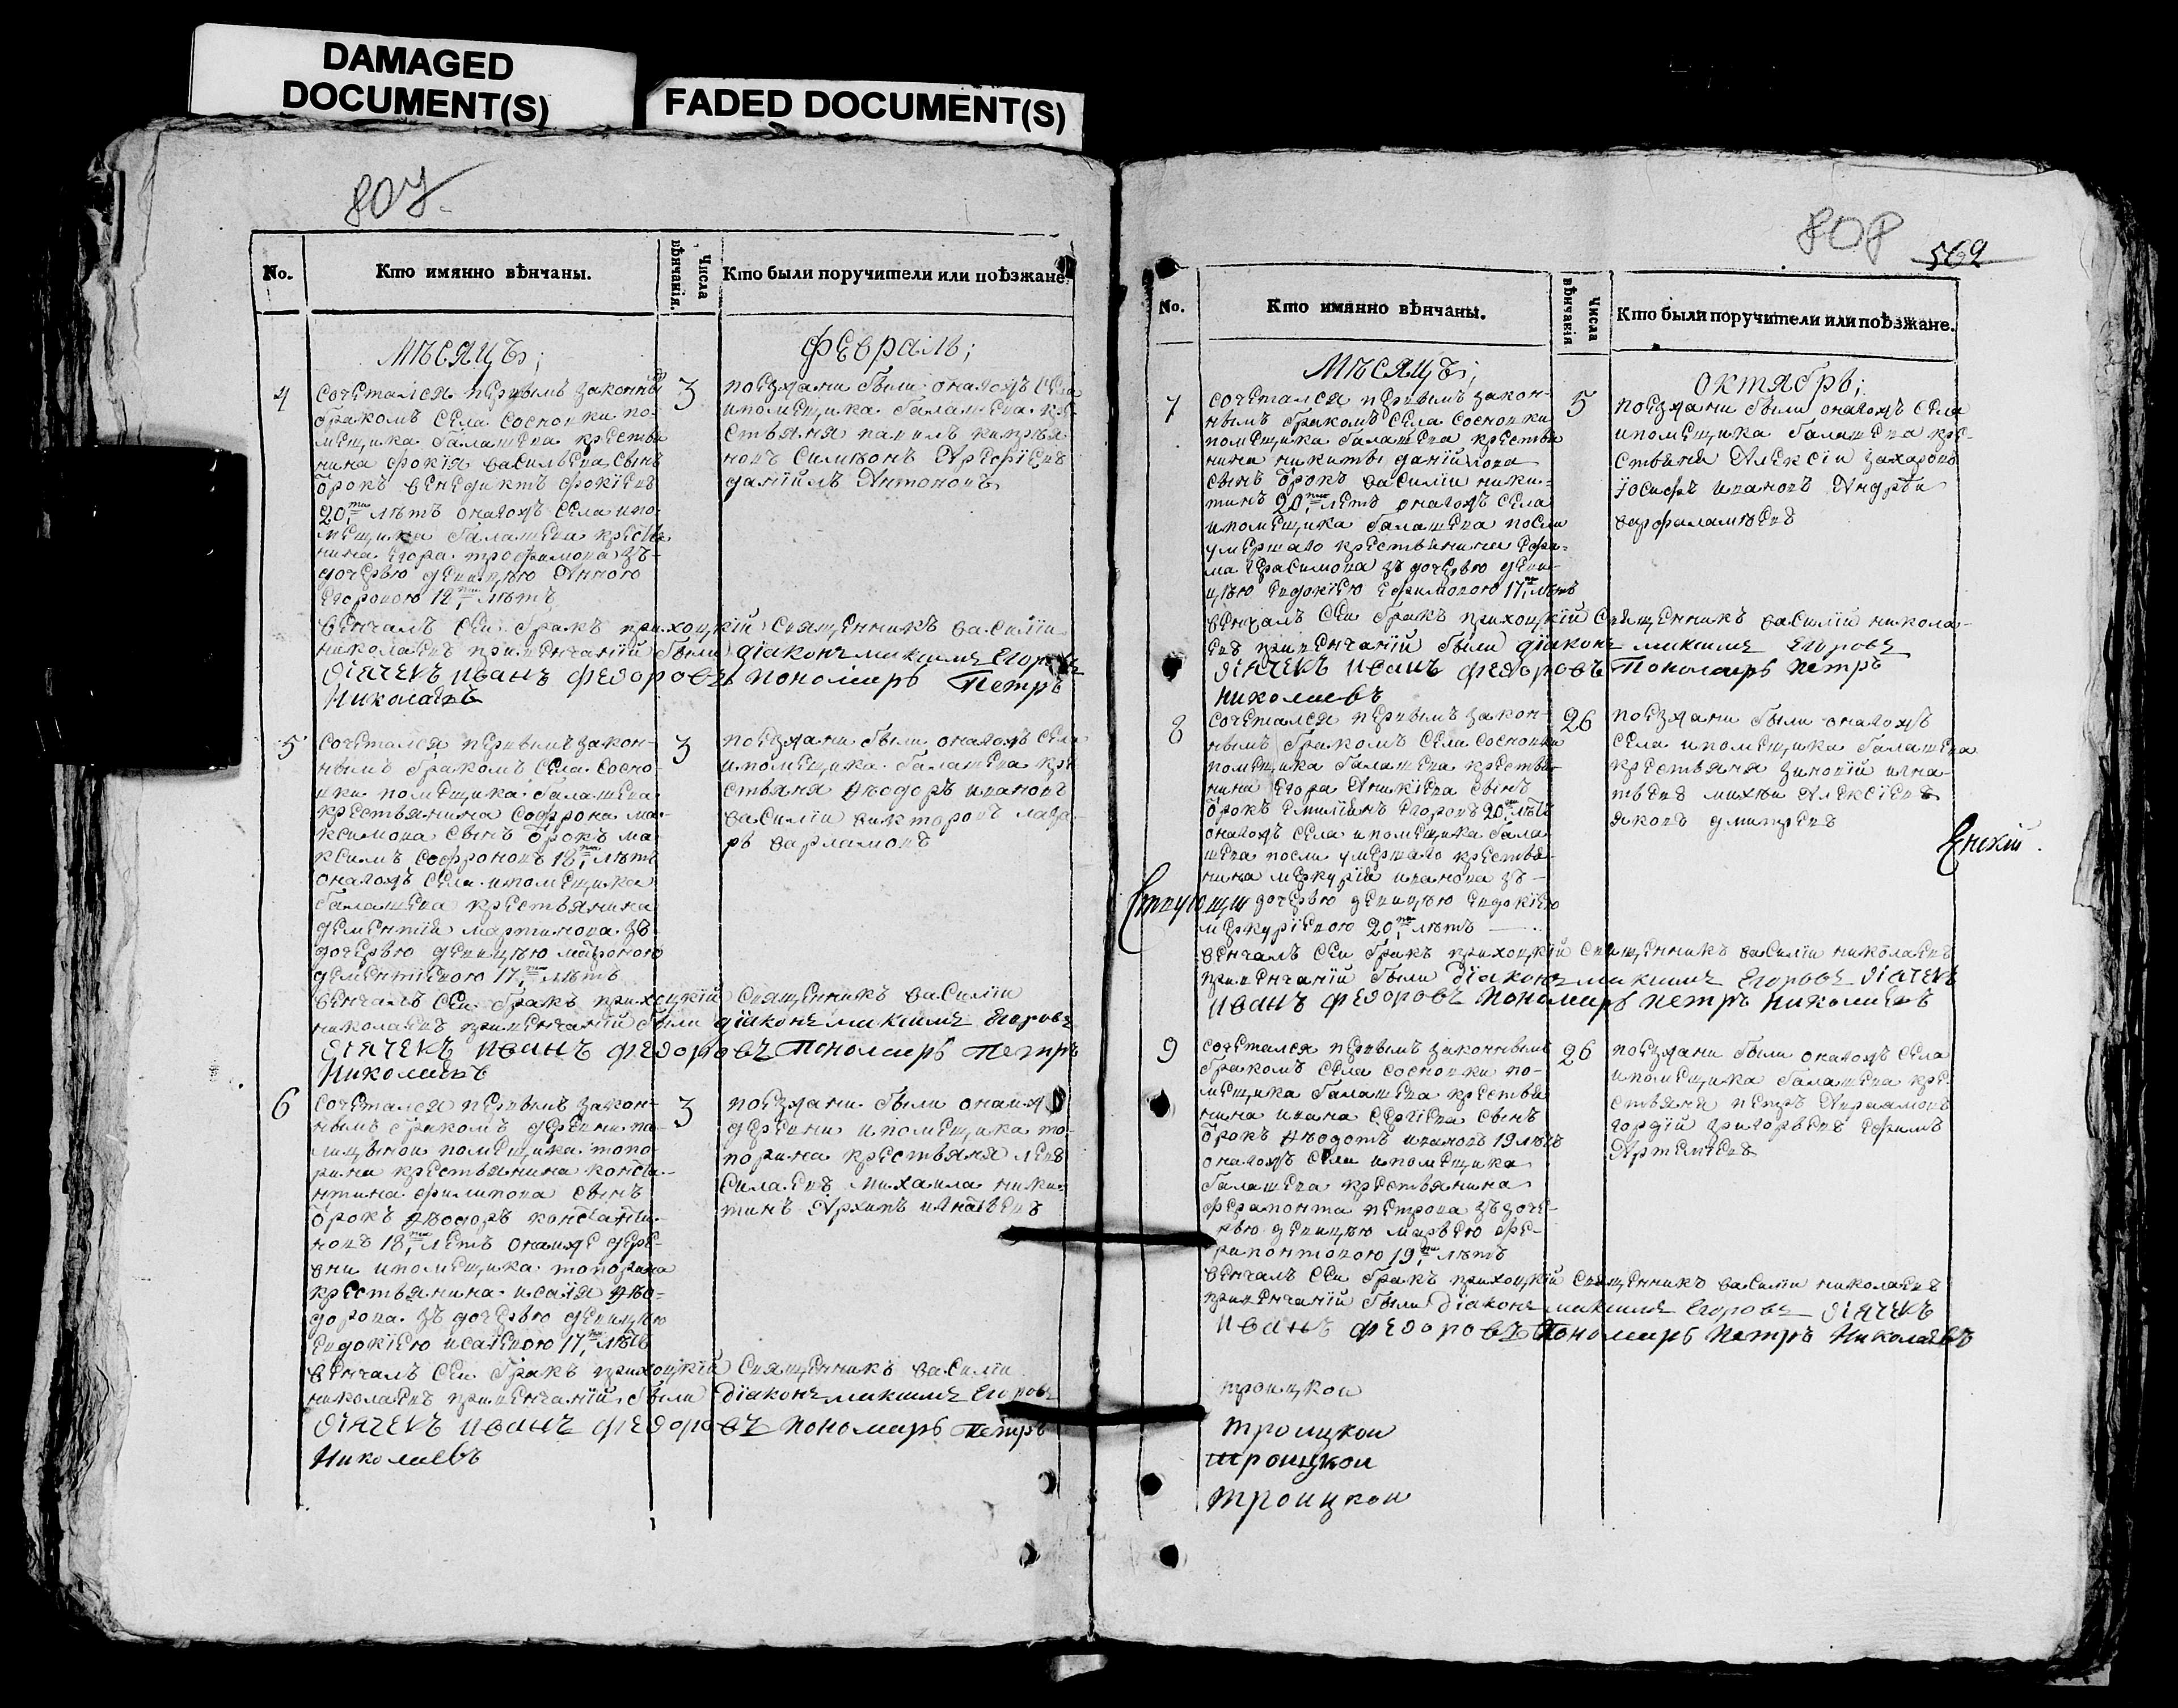 DAMAGED
DOCUMENT(S)
FADED DOCUMENT(S)
807
No.
Кто имянно вѣнчаны.
Числа вѣнчанія.
Кто были поручители или поѣзжане.
мѣсяцъ;
февраль;
4
сочетался первымъ законны
бракомъ села сосновки по-
мещика балашева крестья
нина фокія васильева сынъ
отрокъ венедиктъ фокіевъ
20, лѣтъ онагожъ села ипо-
мещика балашева крестья
нина егора трофимова зъ-
дочерью девицѣю анною
егоровою 18, лѣтъ
3
поезжани были онагожъ села
ипомещика балашева кре
стьяня павилъ кипрѣя
новъ симѣонъ арефіевъ
даніилъ антоновъ
венчалъ сеи бракъ прихоцкій священникъ василіи
николаевъ привенчаніи были діаконъ максимъ егоровъ
діячекъ иванъ федоровъ пономарь петръ
николаевъ
5
сочетался первымъ закон-
нымъ бракомъ села сосно-
вки помещика балашева
крестьянина софрона ма-
ксимова сынъ отрокъ ма-
ксимъ софроновъ 18, лѣтъ
онагожъ села ипомещика
балашева крестьянина
дементія мартинова зъ
дочерью девицѣю матроною
дементіевою 17, лѣтъ
3
поезжани были онагожъ села
ипомещика балашева кре
стьяня ѳѣодоръ ивановъ
василіи викторовъ лавр
рѣ варламовъ
венчалъ сеи бракъ прихоцкій священникъ василіи
николаевъ привенчаніи были діаконъ максимъ егоровъ
діячекъ иванъ федоровъ пономарь петръ
николаевъ
6
сочетался первымъ закон-
нымъ бракомъ деревни па-
лицынои помещика топо-
рина крестьянина конста-
нтина филипова сынъ
отрокъ ѳѣодоръ константи-
новъ 18, летъ онаиже дере-
вни ипомещика топорина
крестьянина исаія ѳѣо-
дорова зъ дочерью девицѣю
евдокіею исаіевою 17, лѣтъ
3
поезжани были онаиже
деревни ипомещика то-
порина крестьяня левъ
силаевъ михаила ники-
тинъ архипъ игнатьевъ
венчалъ сеи бракъ прихоцкій священникъ василіи
николаевъ привенчаніи были діаконъ максимъ егоровъ
діячекъ иванъ федоровъ пономарь петръ
николаевъ
808
569
No.
Кто имянно вѣнчаны.
Числа вѣнчанія
Кто были поручители или поѣзжане.
мѣсяцъ;
октябрь;
7
сочетался первымъ закон-
нымъ бракомъ села сосновки
помещика балашева крестья
нина никиты даніилова
сынъ отрокъ василіи ники-
тинъ 20, летъ онагожъ села
ипомещика балашева посли
умершаго крестьянина ефи-
ма герасимова зъ дочерью деви-
цѣю евдокіею ефимовою 17, лѣтъ
5
поезжани были онагожъ села
ипомещика балашева кре-
стьяня алексіи захаровъ
іосифъ ивановъ андреи
варфаламѣевъ
венчалъ сеи бракъ прихоцкій священникъ василіи никола-
евъ привенчаніи были діаконъ максимъ егоровъ
діячекъ иванъ федоровъ пономарь петръ
николаевъ
8
сочетался первымъ закон-
нымъ бракомъ села сосновки
помещика балашева крестья-
нина егора аникіева сынъ
отрокъ емиліянъ егоровъ 20, лѣтъ
онагожъ села ипомещика бала
шева посли умершаго крестья-
нина меркурія иванова зъ-
дочерью девицѣю евдокіею
меркуріевою 20, лѣтъ
26
поезжани были онагожъ
села ипомещика балашева
крестьяня зиновій игна-
тьевъ михѣи алексіевъ
яковъ дмитревъ
венчалъ сеи бракъ прихоцкій священникъ василіи николаевъ
привенчаніи были діаконъ максимъ егоровъ діячекъ
иванъ федоровъ пономарь петръ николаевъ
9
сочетался первымъ законнымъ
бракомъ села сосновки по-
мещика балашева крестья
нина ивана сергіева сынъ
отрокъ ѳѣодотъ ивановъ 19 лѣтъ
онагожъ села ипомещика
балашева крестьянина
ферапонта петрова зъ доче-
рью девицѣю марьею фе-
рапонтовою 19, лѣтъ
26
поезжани были онагожъ села
ипомещика балашева кре-
стьяня петръ авраамовъ
гордій григорьевъ ефимъ
артемиевъ
венчалъ сеи бракъ прихоцкій священникъ василіи николаевъ
привенчаніи были діаконъ максимъ егоровъ діячекъ
иванъ федоровъ пономарь петръ николаевъ
троицкои
троицкои
троицкои
троицкои